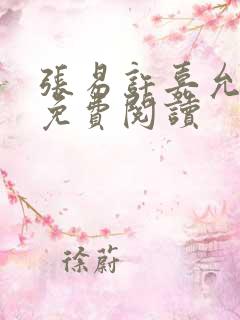 張易許嘉允
免費閱讀
徐蔚